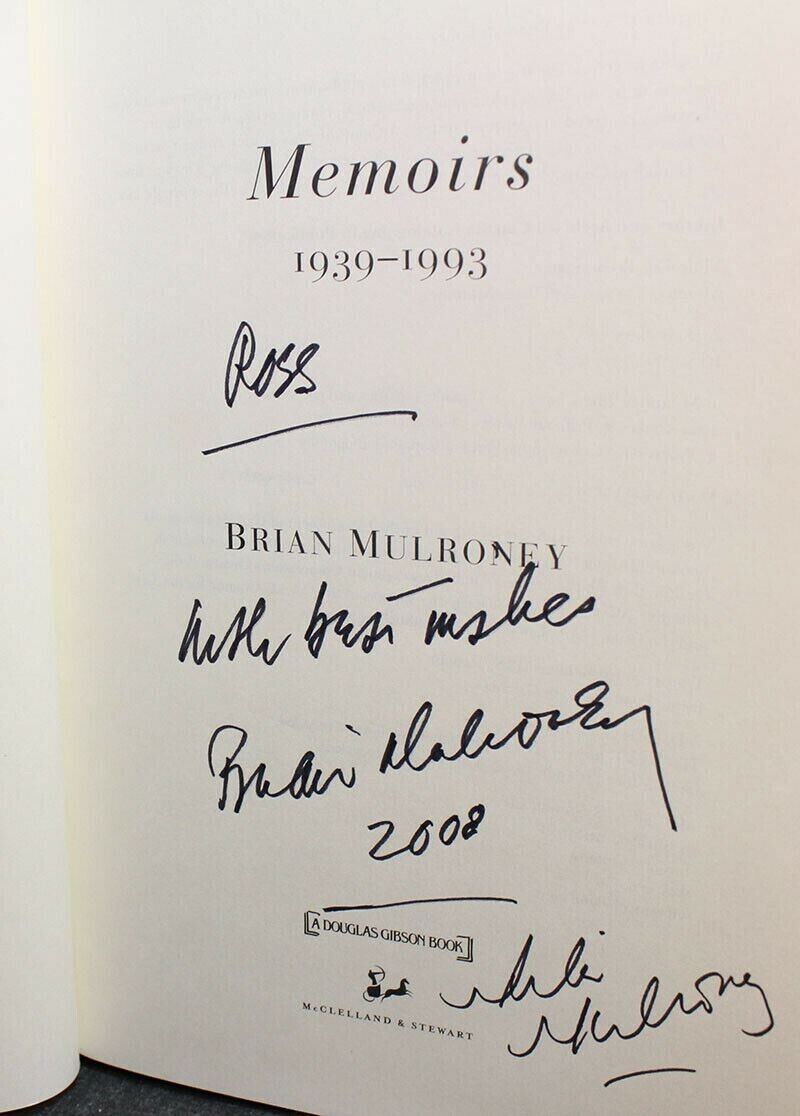 Memoirs
1939–1993
Ross
BRIAN MULRONEY
with best wishes
Brian Mulroney
2008
A DOUGLAS GIBSON BOOK
McCLELLAND & STEWART
Mila
Mulroney